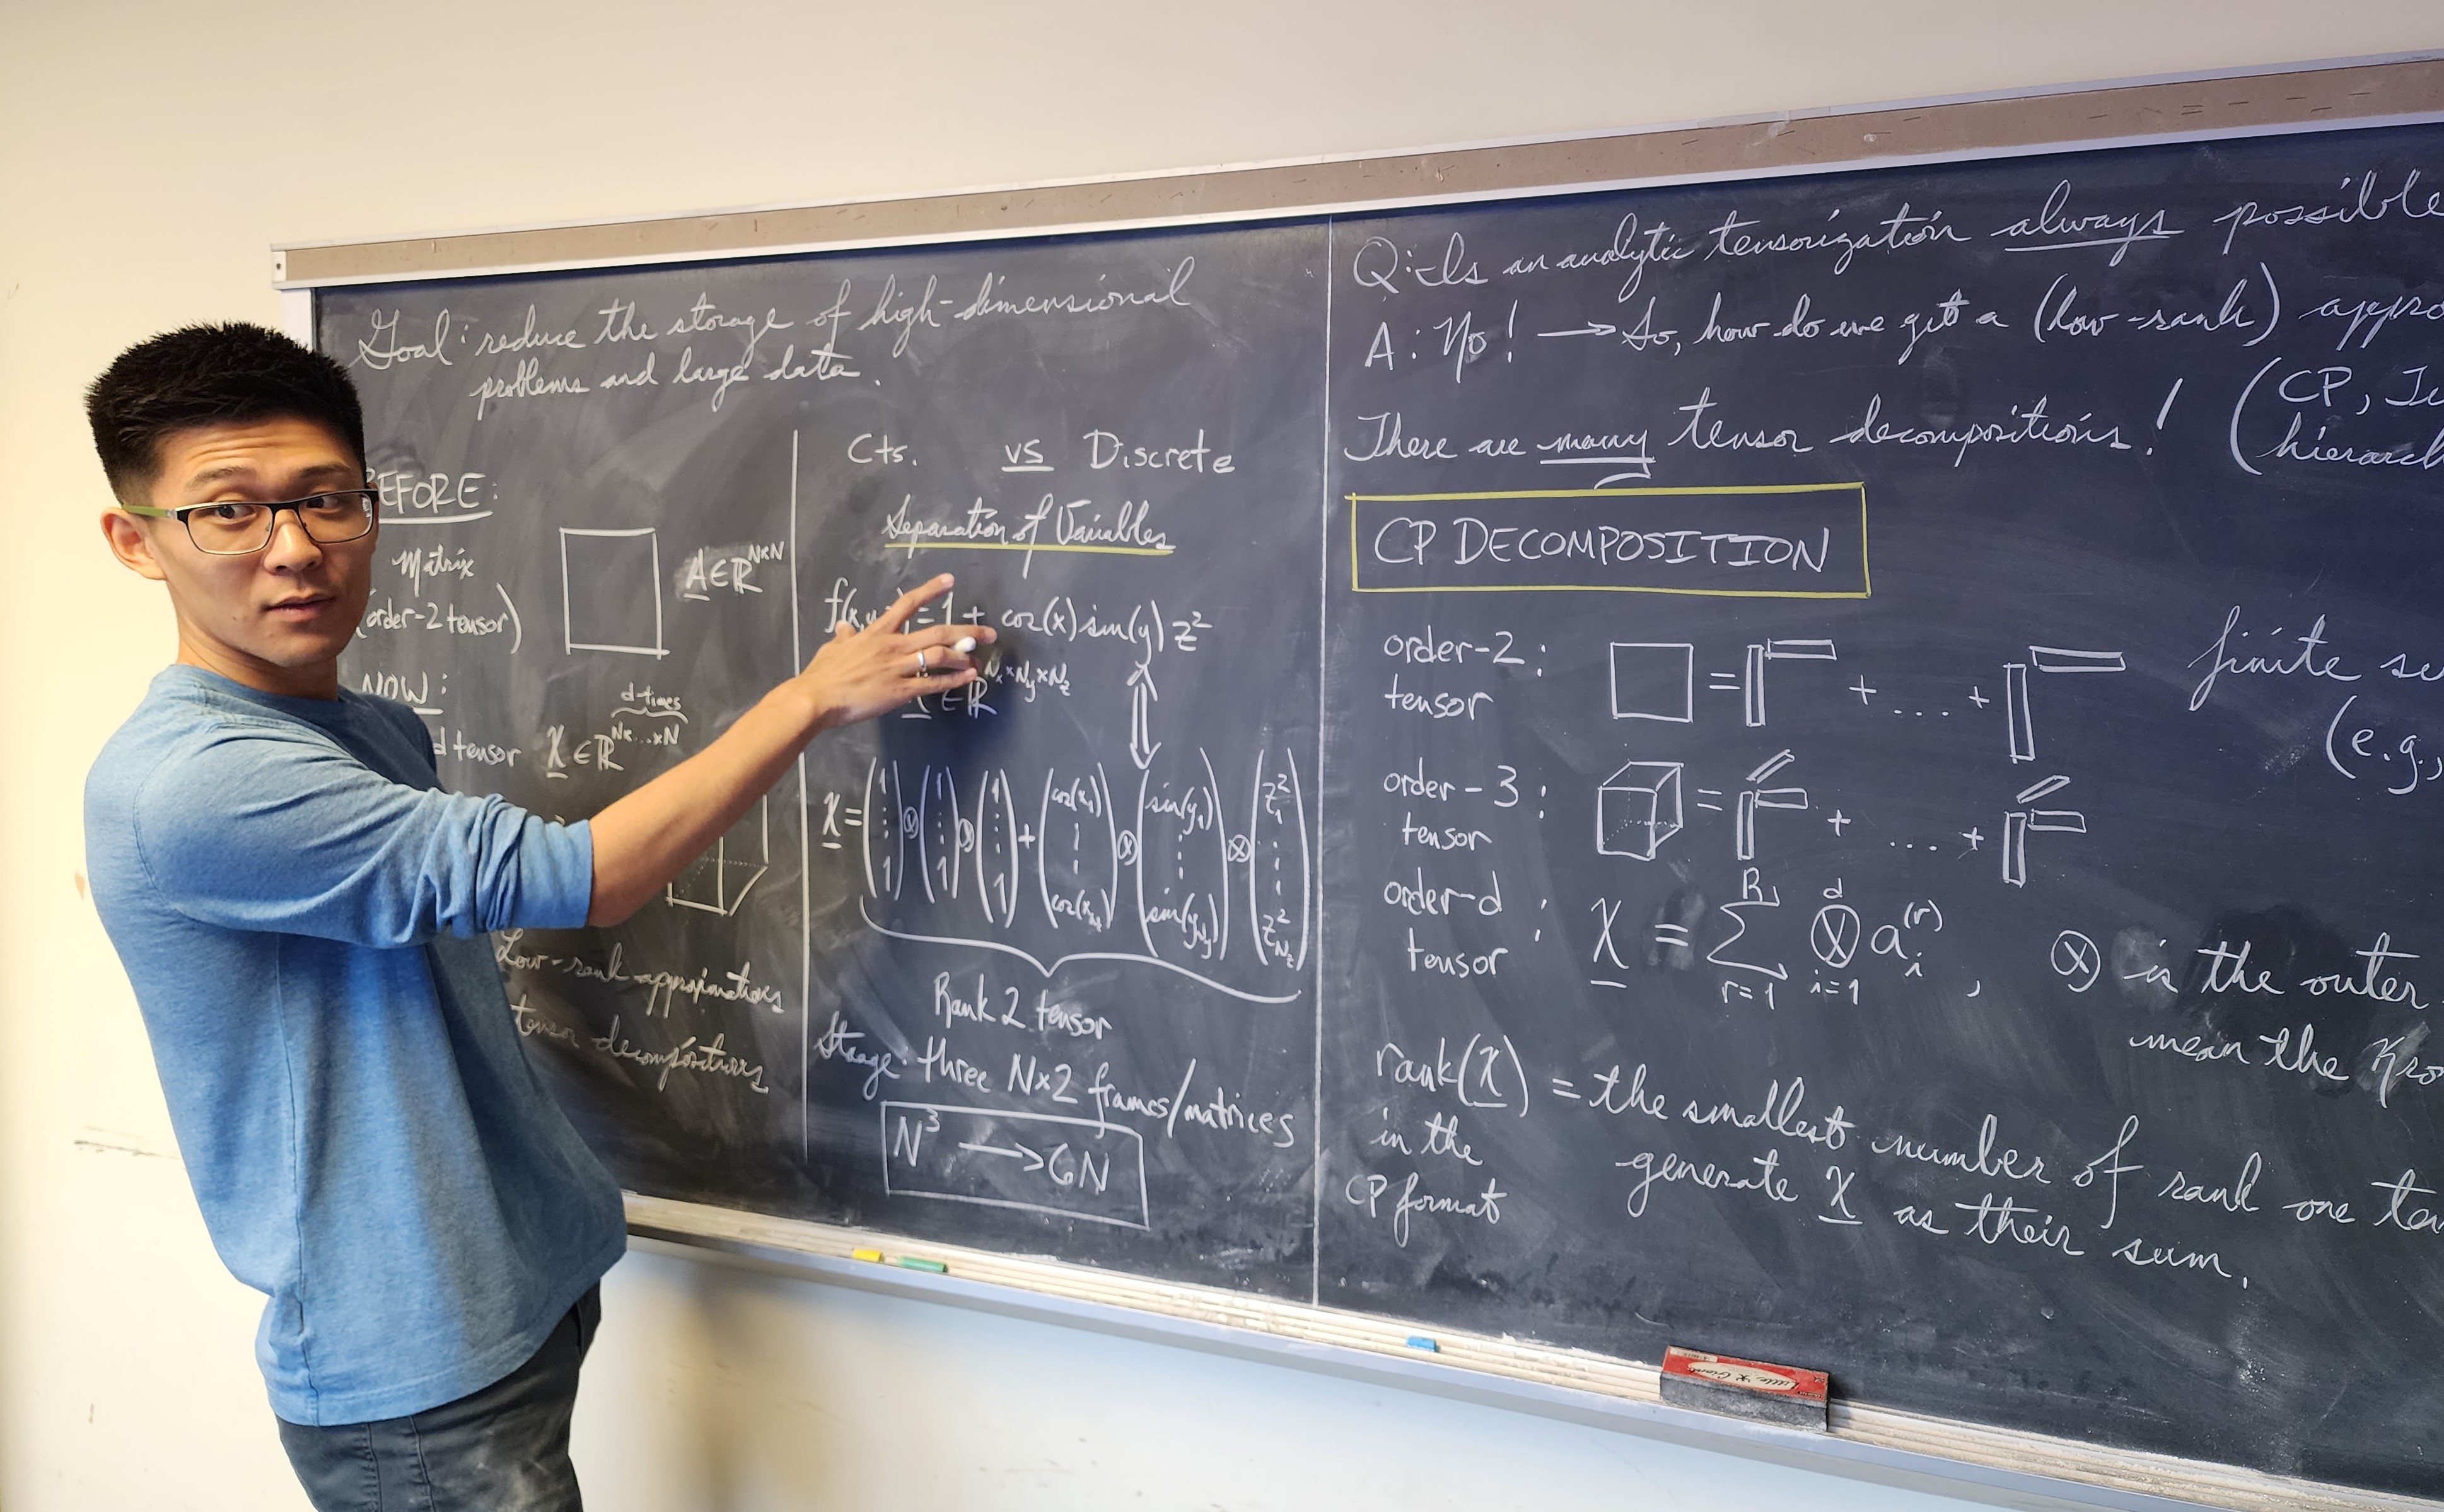 Goal: reduce the storage of high-dimensional
problems and large data.
EFORE:
Matrix
(order-2 tensor)
A ∈ ℝ^{N×N}
NOW:
d tensor X ∈ ℝ^{N×...×N}
d-times
Low-rank approximations
tensor decompositions
Cts. vs Discrete
Separation of Variables
f(x,y, = 1 + cos(x) sin(y) z²
X ∈ ℝ^{N_x×N_y×N_z}
X = (1 ⋮ 1) ⊗ (1 ⋮ 1) ⊗ (1 ⋮ 1) + (cos(x_1) ⋮ cos(x_{N_x})) ⊗ (sin(y_1) ⋮ sin(y_{N_y})) ⊗ (z_1^2 ⋮ z_{N_z}^2)
Rank 2 tensor
Storage: three N×2 frames/matrices
N³ → 6N
Q: Is an analytic tensorization always possible
A: No! → So, how do we get a (low-rank) appro
There are many tensor decompositions! (CP, Tu
hierarch
CP DECOMPOSITION
order-2 tensor : = + .... +
finite su
(e.g.,
order-3 tensor : = + .... +
order-d tensor : X = Σ_{r=1}^{R} ⊗_{i=1}^{d} a_i^{(r)} , ⊗ is the outer
mean the Kro
rank(X) = the smallest number of rank one ten
in the CP format
generate X as their sum.
Little Giant